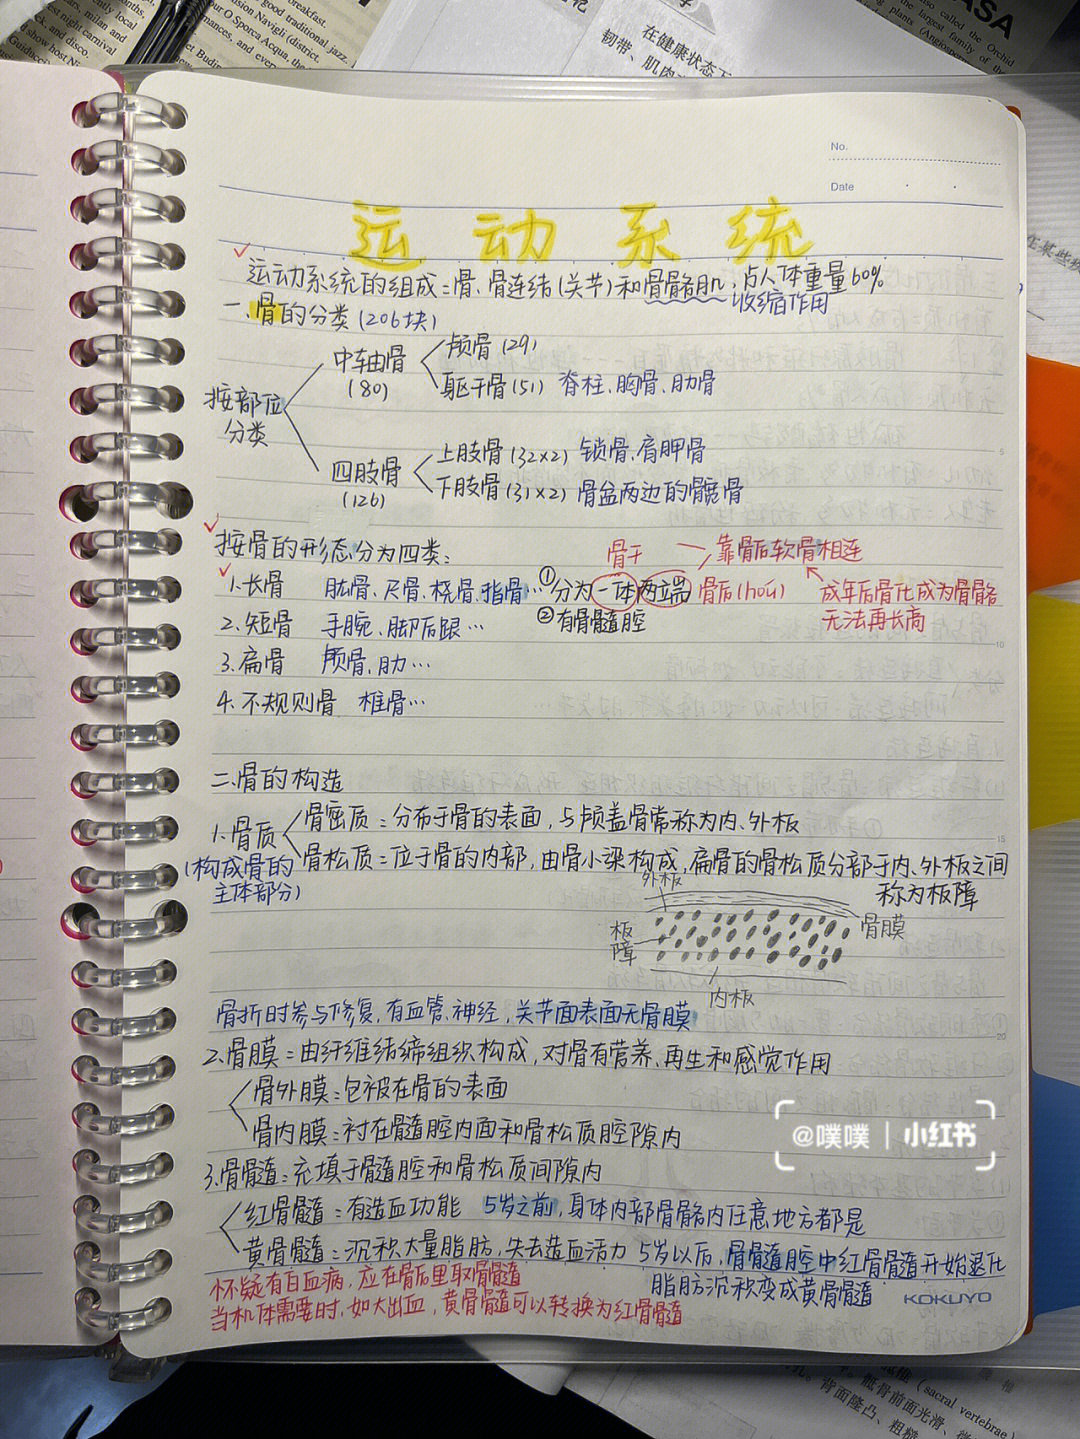 breakfast.
good traditional
jazz.
Navigli (district.
O Sporca Acqua, the
night carnival
show host
在健康状态下
韧带、肌肉
also called the Orchid
the largest family of
ASA
No.
Date
运动系统
运动系统的组成:骨、骨连结(关节)和骨骼肌,占人体重量60%
收缩作用
一.骨的分类(206块)
按部位分类
中轴骨(80)
颅骨(29)
躯干骨(51) 脊柱、胸骨、肋骨
四肢骨(126)
上肢骨(32×2) 锁骨、肩胛骨
下肢骨(31×2) 骨盆两边的髋骨
按骨的形态分为四类:
骨干
靠骺软骨相连
1.长骨 肱骨、尺骨、桡骨、指骨… ①分为一体两端 骨后(hóu) 成年后骨化成为骨骼
无法再长高
②有骨髓腔
2.短骨 手腕、脚后跟…
3.扁骨 颅骨、肋…
4.不规则骨 椎骨…
二.骨的构造
1.骨质
(构成骨的主体部分)
骨密质:分布于骨的表面,与颅盖骨常称为内、外板
骨松质:位于骨的内部,由骨小梁构成,扁骨的骨松质分部于内、外板之间
称为板障
外板
板障
骨膜
内板
骨折时参与修复,有血管、神经,关节面表面无骨膜
2.骨膜:由纤维结缔组织构成,对骨有营养、再生和感觉作用
骨外膜:包被在骨的表面
骨内膜:衬在骨髓腔内面和骨松质腔隙内
@噗噗 | 小红书
3.骨髓:充填于髓腔和骨松质间隙内
红骨髓:有造血功能 5岁之前,身体内部骨骼内任意地方都是
黄骨髓:沉积大量脂肪,失去造血活力 5岁以后,骨髓腔中红骨髓开始退化
脂肪沉积变成黄骨髓
怀疑有白血病,应在骨后里取骨髓
当机体需要时,如大出血,黄骨髓可以转换为红骨髓
KOKUYO
(sacral vertebrae)
骶骨前面光滑、微
背面隆凸、粗糙